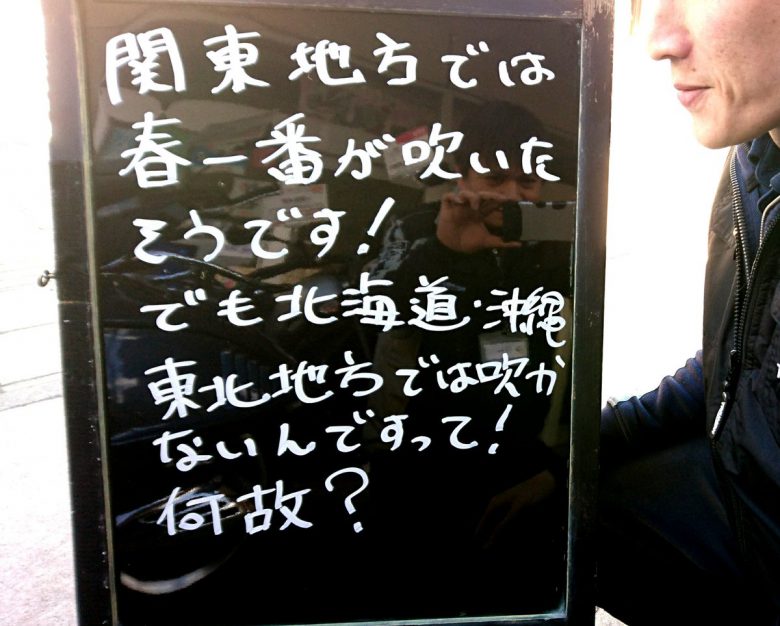 関東地方では
春一番が吹いた
そうです!
でも北海道・沖縄
東北地方では吹か
ないんですって!
何故?